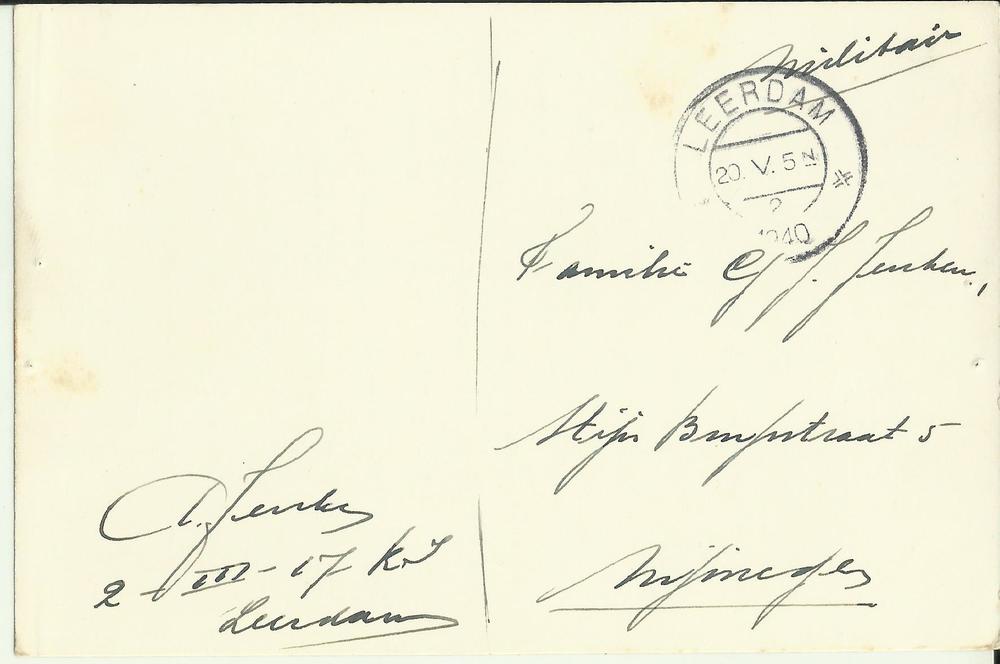 Militair
LEERDAM
20. V. 5 N
1940
Familie G. J. Jenken,
Stijn Buysstraat 5
Nijmegen
A. Jenken
2 - III - 17 R.I
Leerdam